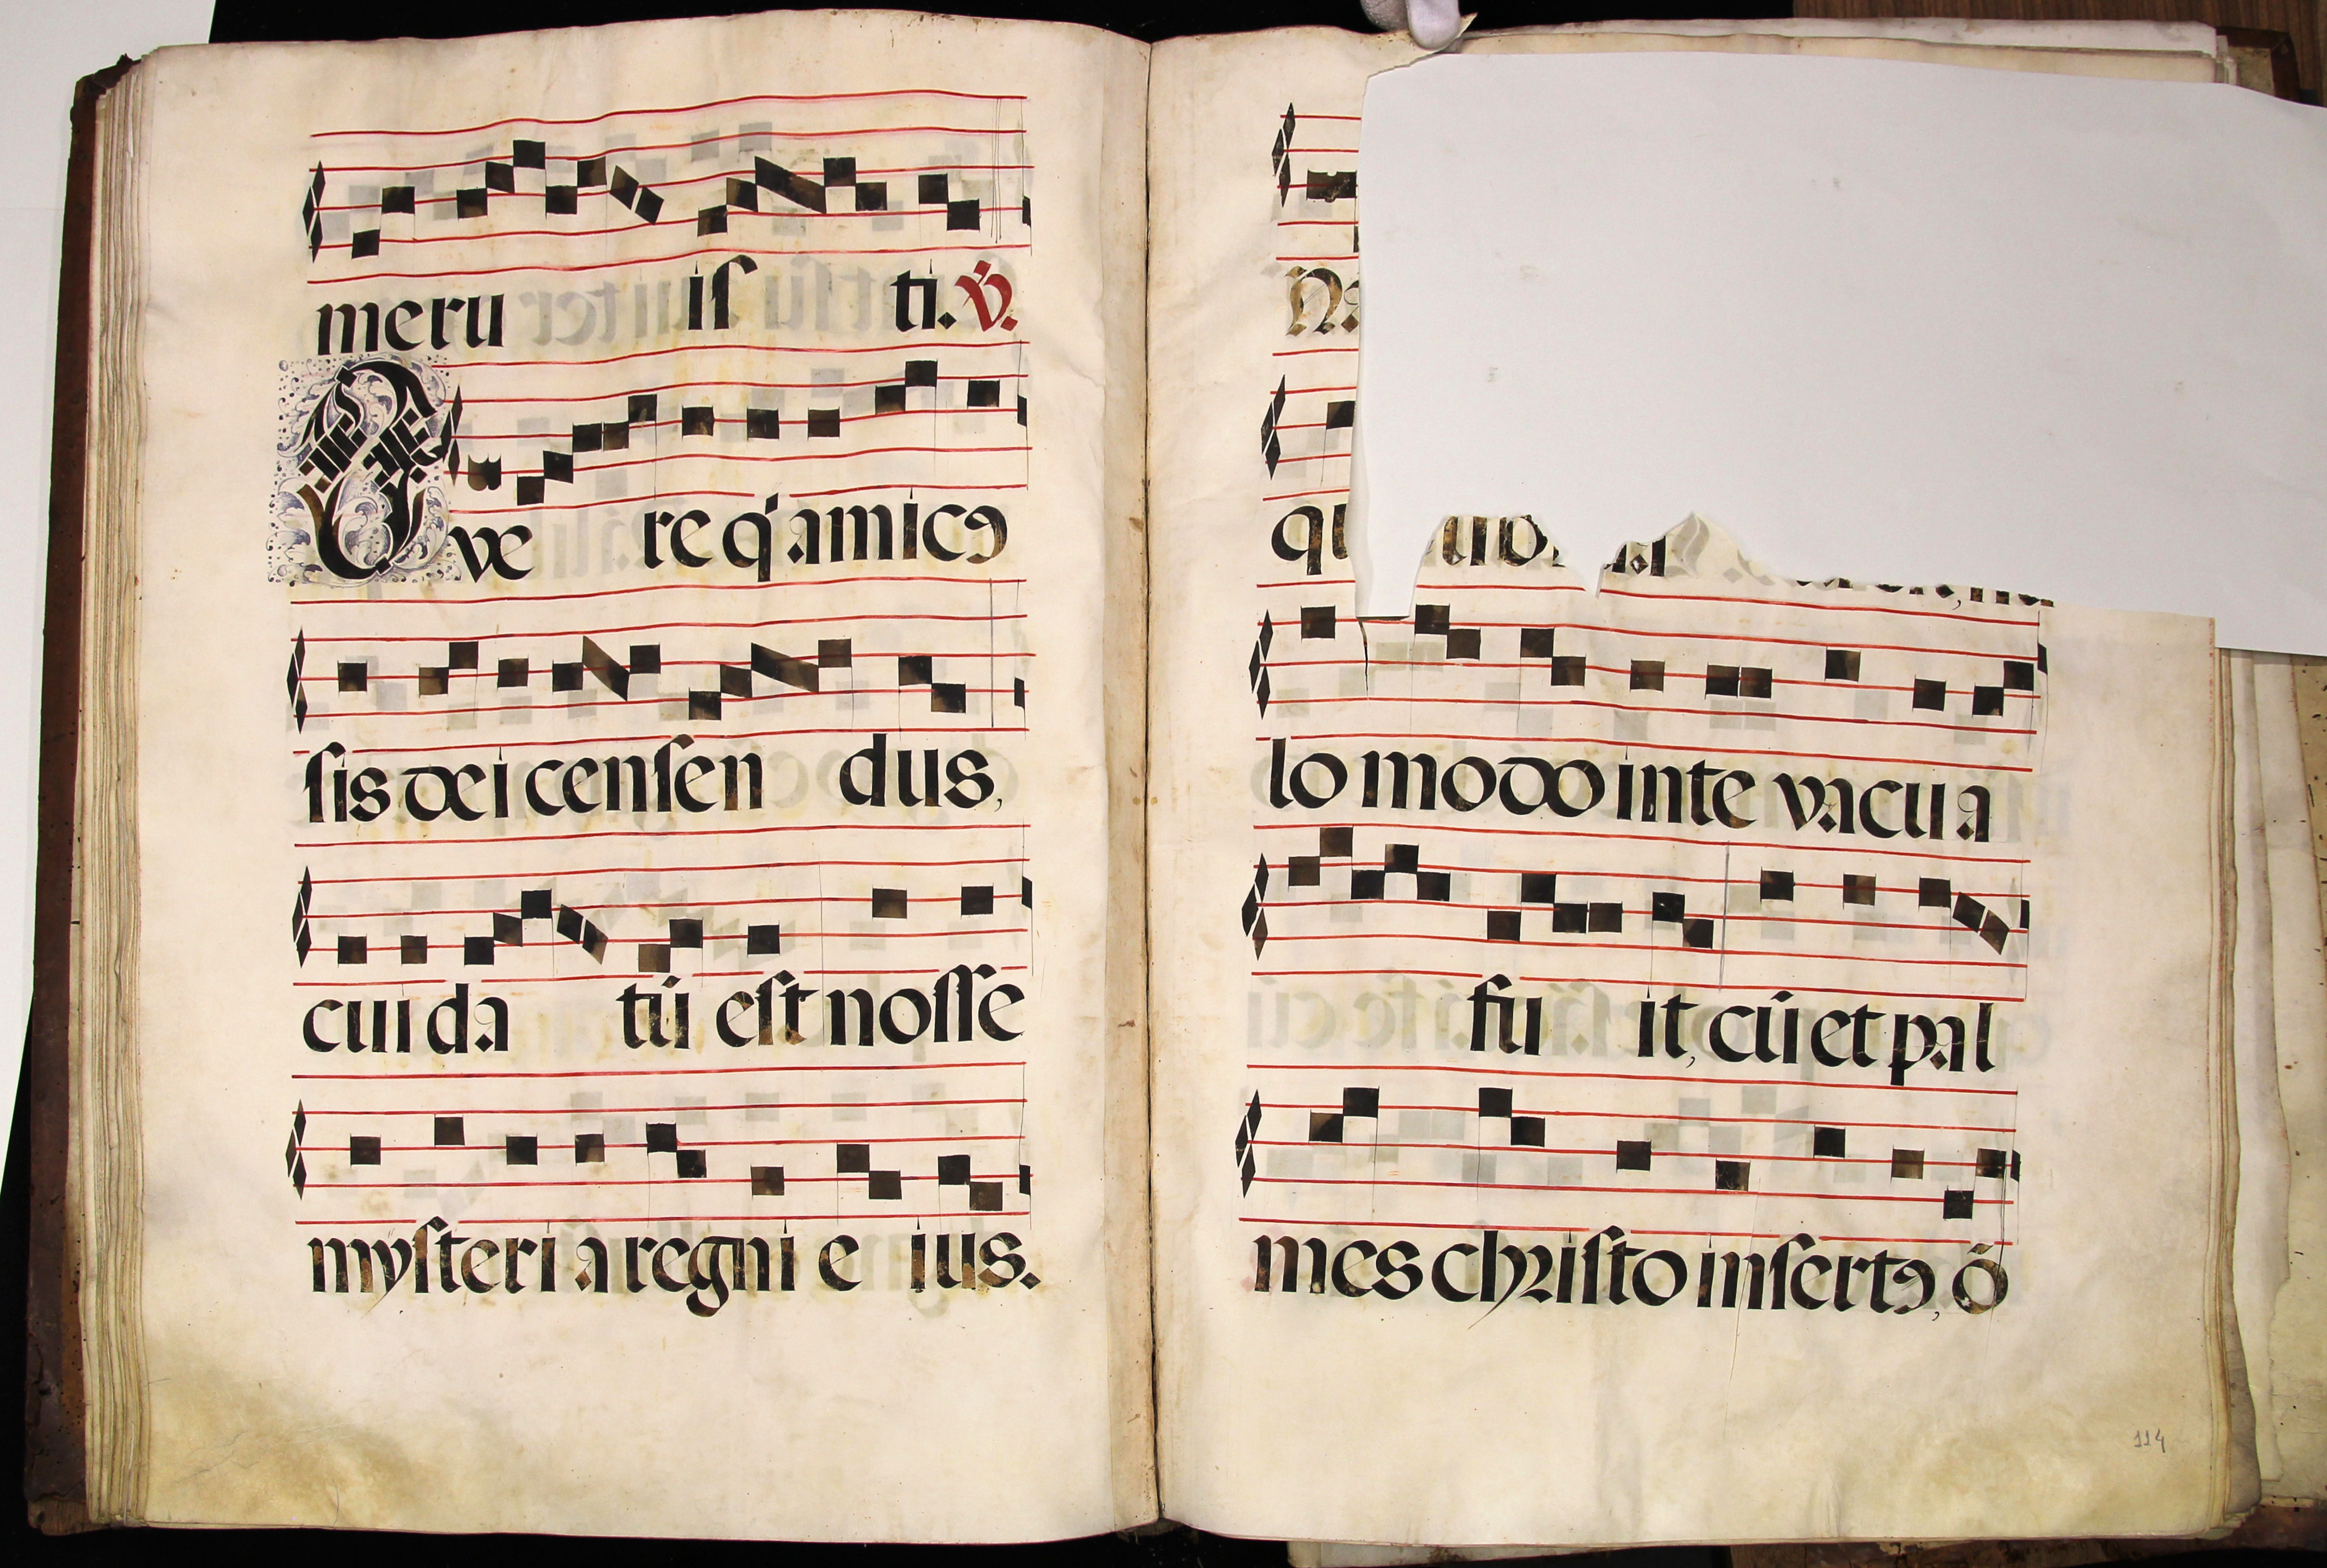 meru is ti. ℣.
Qve re q̓ amicꝯ
sis dei censen dus,
cui da tū est nosse
mysteri a regni e ius.
lo modo in te vacu a
fu it, cū et pal
mes christo insertꝯ, ō
114